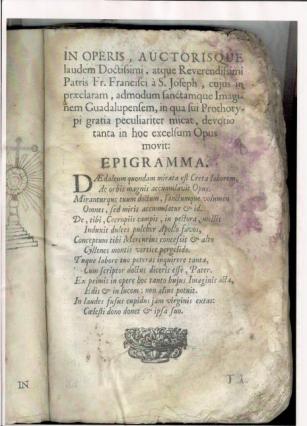 IN OPERIS, AUCTORISQUE
laudem Doctissimi, atque Reverendissimi
Patris Fr. Francisci à S. Joseph, cujus in
præclaram, admodum sanctamque Imagi-
nem Guadalupensem, in qua sui Prothoty-
pi gratia peculiariter micat, devotio
tanta in hoc excelsum Opus
movit:
EPIGRAMMA.
DÆdaleum quondam mirata est Creta laborem,
Ac orbis magnis accumulavit Opus.
Miranturque tuum doctum, sanctumque volumen
Omnes, sed miris accumulatur & id.
De, tibi, Cecropiis campis, in pectora, mellis
Induxit dulces pulcher Apollo favos,
Conceptum tibi Mercurius concessit & alto
Cyllenes montis vertice perspicuo.
Tuque labore tuo poteras inquirere tanta,
Cum scriptor doctus diceris esse, Pater.
Ex primis in opere hoc tanto hujus Imaginis acta,
Edis & in lucem: non alius potuit.
In laudes fusus cupidus jam virginis extas:
Cœlesti dono donet & ipsa suo.
IN